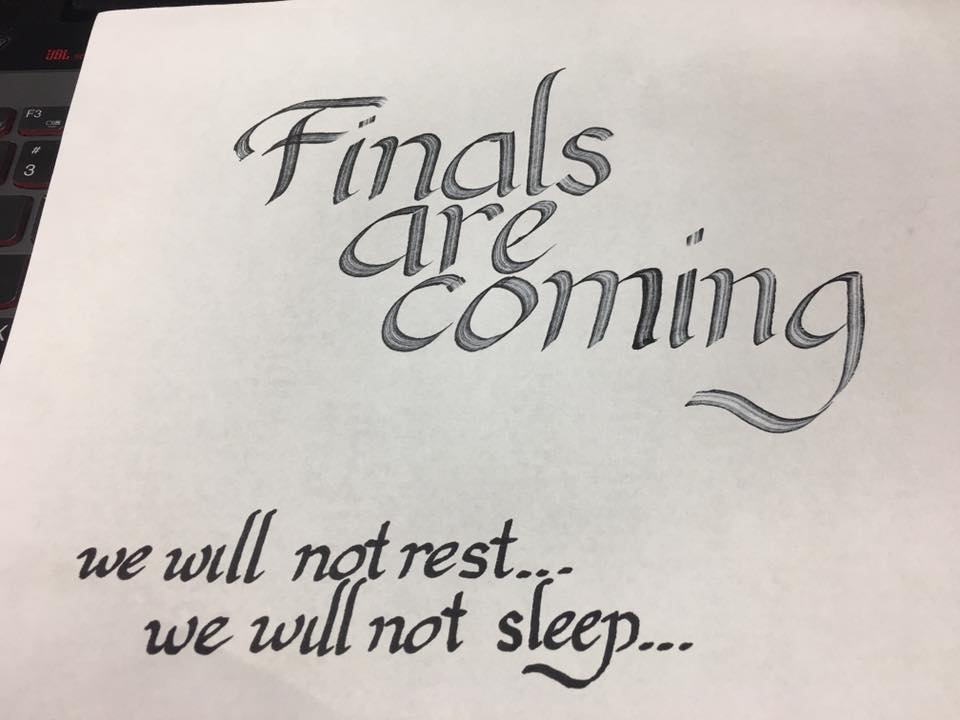 JBL
F3
#
3
Finals
are
coming
we will not rest...
we will not sleep...